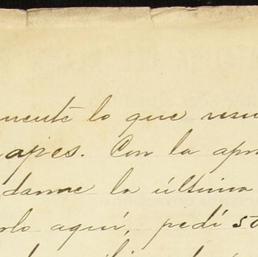 mente lo que resu
apes. Con la apr
darme la última
rlo aquí, pedí 50